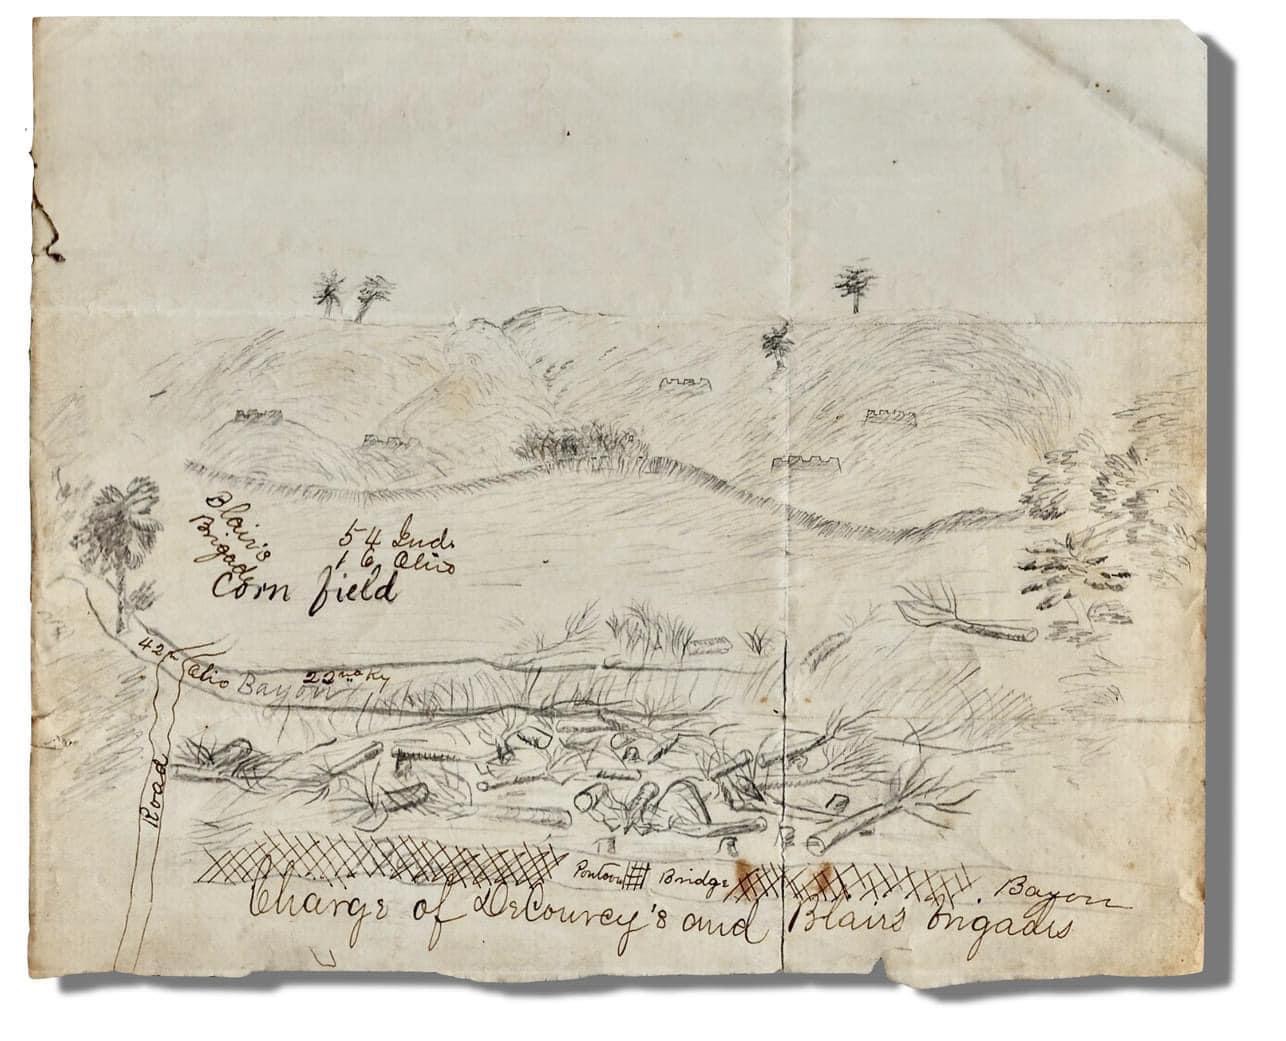 Blair's
Brigade
54 Ind.
16 Ohio
Corn field
42nd Ohio
Bayou
22nd Ky
Road
Pontoon Bridge
Bayou
Charge of DeCourcy's and Blairs brigades